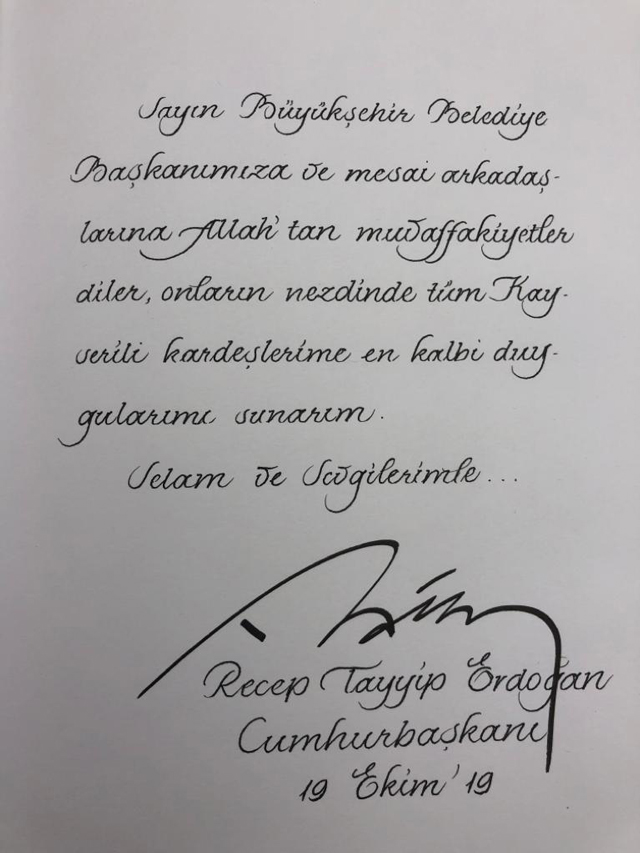 Sayın Büyükşehir Belediye
Başkanımıza ve mesai arkadaş-
larına Allah'tan muvaffakiyetler
diler, onların nezdinde tüm Kay-
serili kardeşlerime en kalbi duy-
gularımı sunarım.
Selam ve Sevgilerimle...
Recep Tayyip Erdoğan
Cumhurbaşkanı
19 Ekim '19